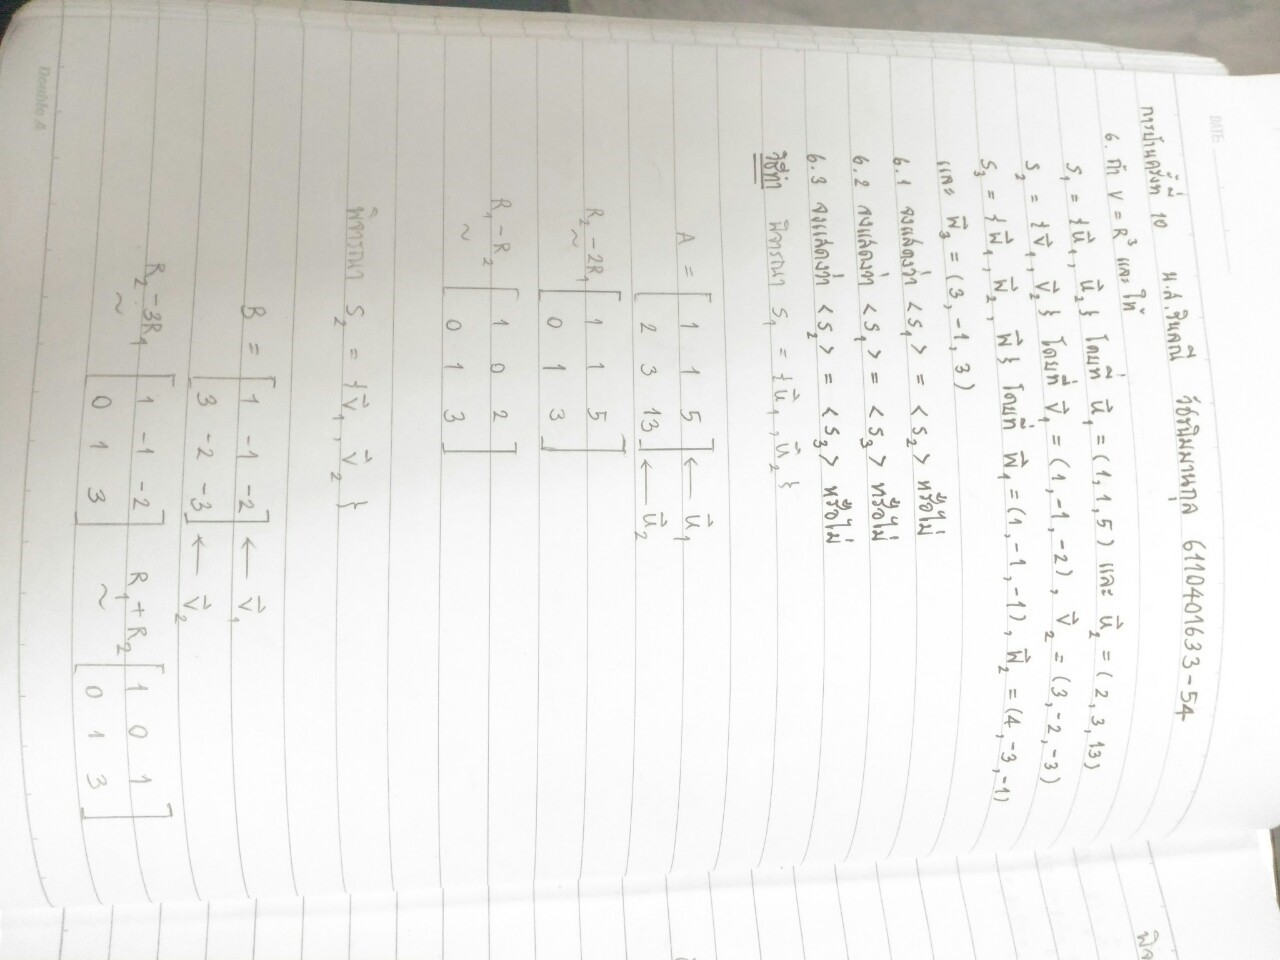 DATE:
การบ้านครั้งที่ 10 น.ส.ชินลณี วัชรนิมมานกุล 6110401633-54
6. ถ้า V = R³ และ ให้
S₁ = {u⃗₁, u⃗₂} โดยที่ u⃗₁ = (1, 1, 5) และ u⃗₂ = (2, 3, 13)
S₂ = {v⃗₁, v⃗₂} โดยที่ v⃗₁ = (1, -1, -2), v⃗₂ = (3, -2, -3)
S₃ = {w⃗₁, w⃗₂, w⃗} โดยที่ w⃗₁ = (1, -1, -1), w⃗₂ = (4, -3, -1)
และ w⃗₃ = (3, -1, 3)
6.1 จงแสดงว่า <S₁> = <S₂> หรือไม่
6.2 จงแสดงว่า <S₁> = <S₃> หรือไม่
6.3 จงแสดงว่า <S₂> = <S₃> หรือไม่
วิธีทำ พิจารณา S₁ = {u⃗₁, u⃗₂}
A = [1 1 5] ← u⃗₁
[2 3 13] ← u⃗₂
R₂ - 2R₁ ~ [1 1 5]
[0 1 3]
R₁ - R₂ ~ [1 0 2]
[0 1 3]
พิจารณา S₂ = {v⃗₁, v⃗₂}
B = [1 -1 -2] ← v⃗₁
[3 -2 -3] ← v⃗₂
R₂ - 3R₁ ~ [1 -1 -2] R₁ + R₂ ~ [1 0 1]
[0 1 3] [0 1 3]
Double A